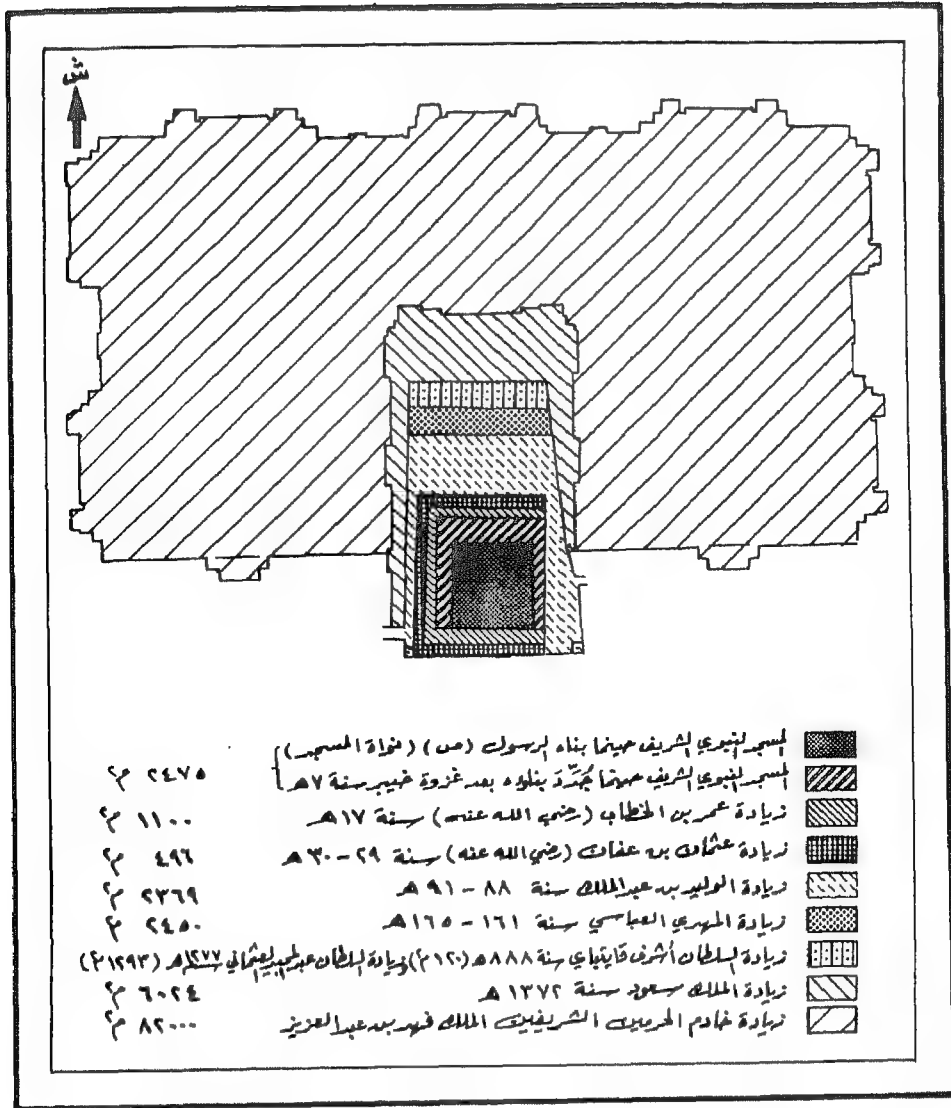 ش
المسجد النبوي الشريف حينما بناه الرسول (ص) (نواة المسجد)
المسجد النبوي الشريف حينما جُدِّد بناؤه بعد غزوة خيبر سنة ٧هـ ٢٤٧٥ م٢
زيادة عمر بن الخطاب (رضي الله عنه) سنة ١٧هـ ١١٠٠ م٢
زيادة عثمان بن عفان (رضي الله عنه) سنة ٢٩-٣٠هـ ٤٩٦ م٢
زيادة الوليد بن عبد الملك سنة ٨٨-٩١هـ ٢٣٦٩ م٢
زيادة المهدي العباسي سنة ١٦١-١٦٥هـ ٢٤٥٠ م
زيادة السلطان أشرف قايتباي سنة ٨٨٨هـ (١٢٠م٢) وزيادة السلطان عبد المجيد العثماني سنة ١٢٧٧هـ (١٢٩٣م٢)
زيادة الملك سعود سنة ١٣٧٢هـ ٦٠٢٤ م٢
زيادة خادم الحرمين الشريفين الملك فهد بن عبد العزيز ٨٢٠٠٠ م٢